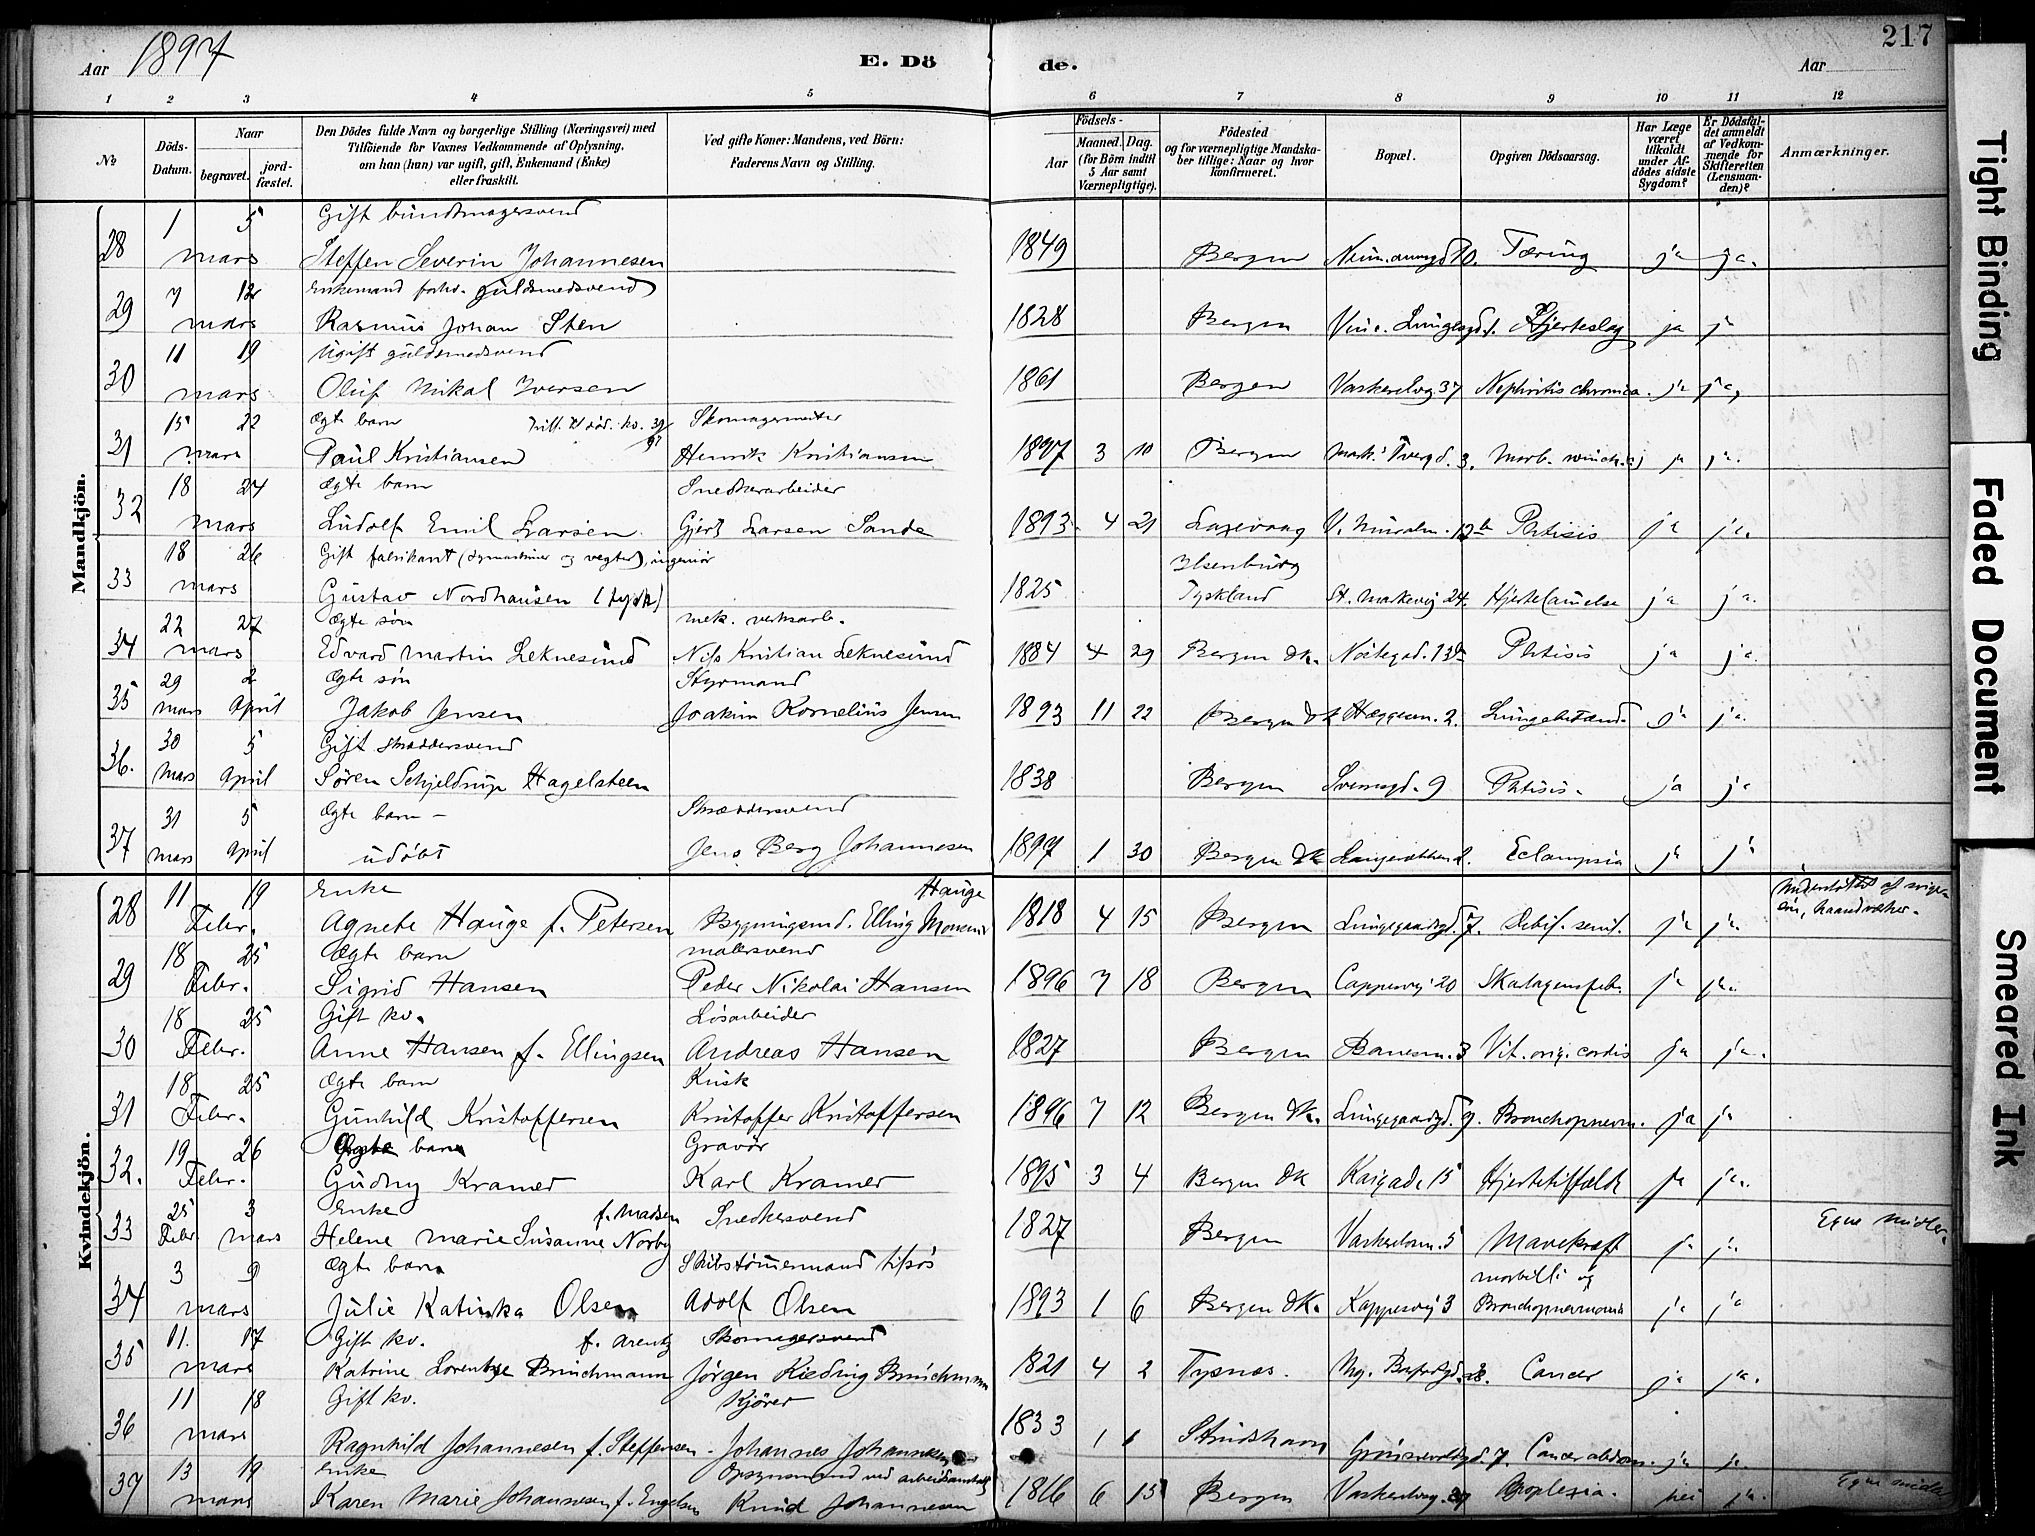 Aar 1897 E. Dö de. Aar 217
1 2 3 4 5 6 7 8 9 10 11 12
No
Döds-Datum.
Naar begravet. jordfæstet.
Den Dödes fulde Navn og borgerlige Stilling (Næringsvei) med
Tilföiende for Voxnes Vedkommende af Oplysning,
om han (hun) var ugift, gift, Enkemand (Enke)
eller fraskilt.
Ved gifte Koner: Mandens, ved Börn:
Faderens Navn og Stilling.
Födsels-
Aar
Maaned. Dag.
(for Börn indtil 5 Aar samt Værnepligtige).
Födested
og for værnepligtige Mandskaber tillige: Naar og hvor konfirmeret.
Bopæl.
Opgiven Dödsaarsag.
Har Læge været tilkaldt under Afdödes sidste Sygdom?
Er Dödsfaldet anmeldt af Vedkommende for Skifteretten (Lensmanden)?
Anmærkninger.
Mandkjön.
1 5 Gift bundtmagersvend
28 mars Steffen Severin Johannesen 1849 Bergen 10. Tæring ja ja.
7 12 Enkemand forhv. guldsmedsvend
29 mars Rasmus Johan Sten 1828 Bergen Hjerteslag ja ja
11 19 Ugift guldsmedsvend
30 mars Oluf Mikal Iversen 1861 Bergen Vaskerelvg. 37 Nephritis chronica. ja ja,
15 22 Ægte barn Skomagermester
31 mars Paul Kristiansen Henrik Kristiansen 1897 3 10 Bergen Tvergd. 3. ja ja.
18 24 Ægte barn Snedkerarbeider
32 mars Ludolf Emil Larsen Gjert Larsen Sande 1893 4 21 Laxevaag Phtisis ja ja.
18 26 Gift fabrikant (symaskiner og vegter), ingeniør Ilsenburg
33 mars Gustav Nordhausen (tysk) 1825 Tyskland St. Markevej 24. Hjertelamelse ja ja.
22 27 Ægte søn mek. verksarb.
34 mars Edvard Martin Leknesund Nils Kristian Leknesund 1884 4 29 Bergen Dk. Nøstegad. Phtisis ja ja.
29 2 Ægte søn Styrmand
35 mars April Jakob Jensen Joakim Kornelius Jensen 1893 11 22 Bergen Dk 2. Lungebetænd. ja ja.
30 5 Gift skreddersvend
36. mars April Søren Schjeldrup Hagelsteen 1838 Bergen 9 Phtisis. ja ja
31 5 Ægte barn - Skræddersvend
37 mars April udøbt Jens Berg Johannesen 1897 1 30 Bergen Dk Eclampsia ja ja
Kvindekjön.
11 19 Enke Hauge
28 Febr. Agnete Hauge f. Petersen Bygningsmd. Elling Monsen 1818 4 15 Bergen Lungegaardsgd. 7. Debil. senil. ja ja.
18 25 Ægte barn malersvend
29 Febr. Sigrid Hansen Peder Nikolai Hansen 1896 7 18 Bergen Cappesvej 20 Skalagensfeb. ja ja.
18 25 Gift ko. Løsarbeider
30 Febr. Anne Hansen f. Ellingsen Andreas Hansen 1827 Bergen 3 Vit. orig. cordis ja ja.
18 25 Ægte barn Kusk
31 Febr. Gunhild Kristoffersen Kristoffer Kristoffersen 1896 7 12 Bergen Dk. Lungegaardsgd. 9. Bronchopnevm. ja ja
19 26 Ægte barn Gravør
32. Febr. Gudny Kramer Karl Kramer 1895 3 4 Bergen Dk Kaigade 15 Hjertetilfælde ja ja.
25 3 Enke f. Madsen Snedkersvend Egne midler.
33 Febr mars Helene Marie Susanne Norby 1827 Bergen 5 Mavekræft ja ja.
3 9 Ægte barn Skibstømmermand tilsøs morbilli og
34 mars Julie Katinka Olsen Adolf Olsen 1893 1 6 Bergen Dk. Kappesvej 3 Bronchopnevmonia ja ja
11. 17 Gift ko. f. Arentz Skomagersvend
35 mars Katrine Lorentze Brinchmann Jørgen Kieding Brinchmann 1821 4 2 Tysnes. 28. Cancer ja ja.
11 18 Gift ko. Kjører
36 mars Ragnhild Johannesen f. Steffensen. Johannes Johannesen 1833 1 1 7. Cancer abdom. ja ja.
13 19 Enke Opsynsmand ved arbeidsanstalt Egne midler
37 mars Karen Marie Johannesen f. Engelsen Knud Johannesen 1816 6 15 Bergen Vaskerelvsg. Apoplexia. nei ja.
Tight Binding
Faded Document
Smeared Ink